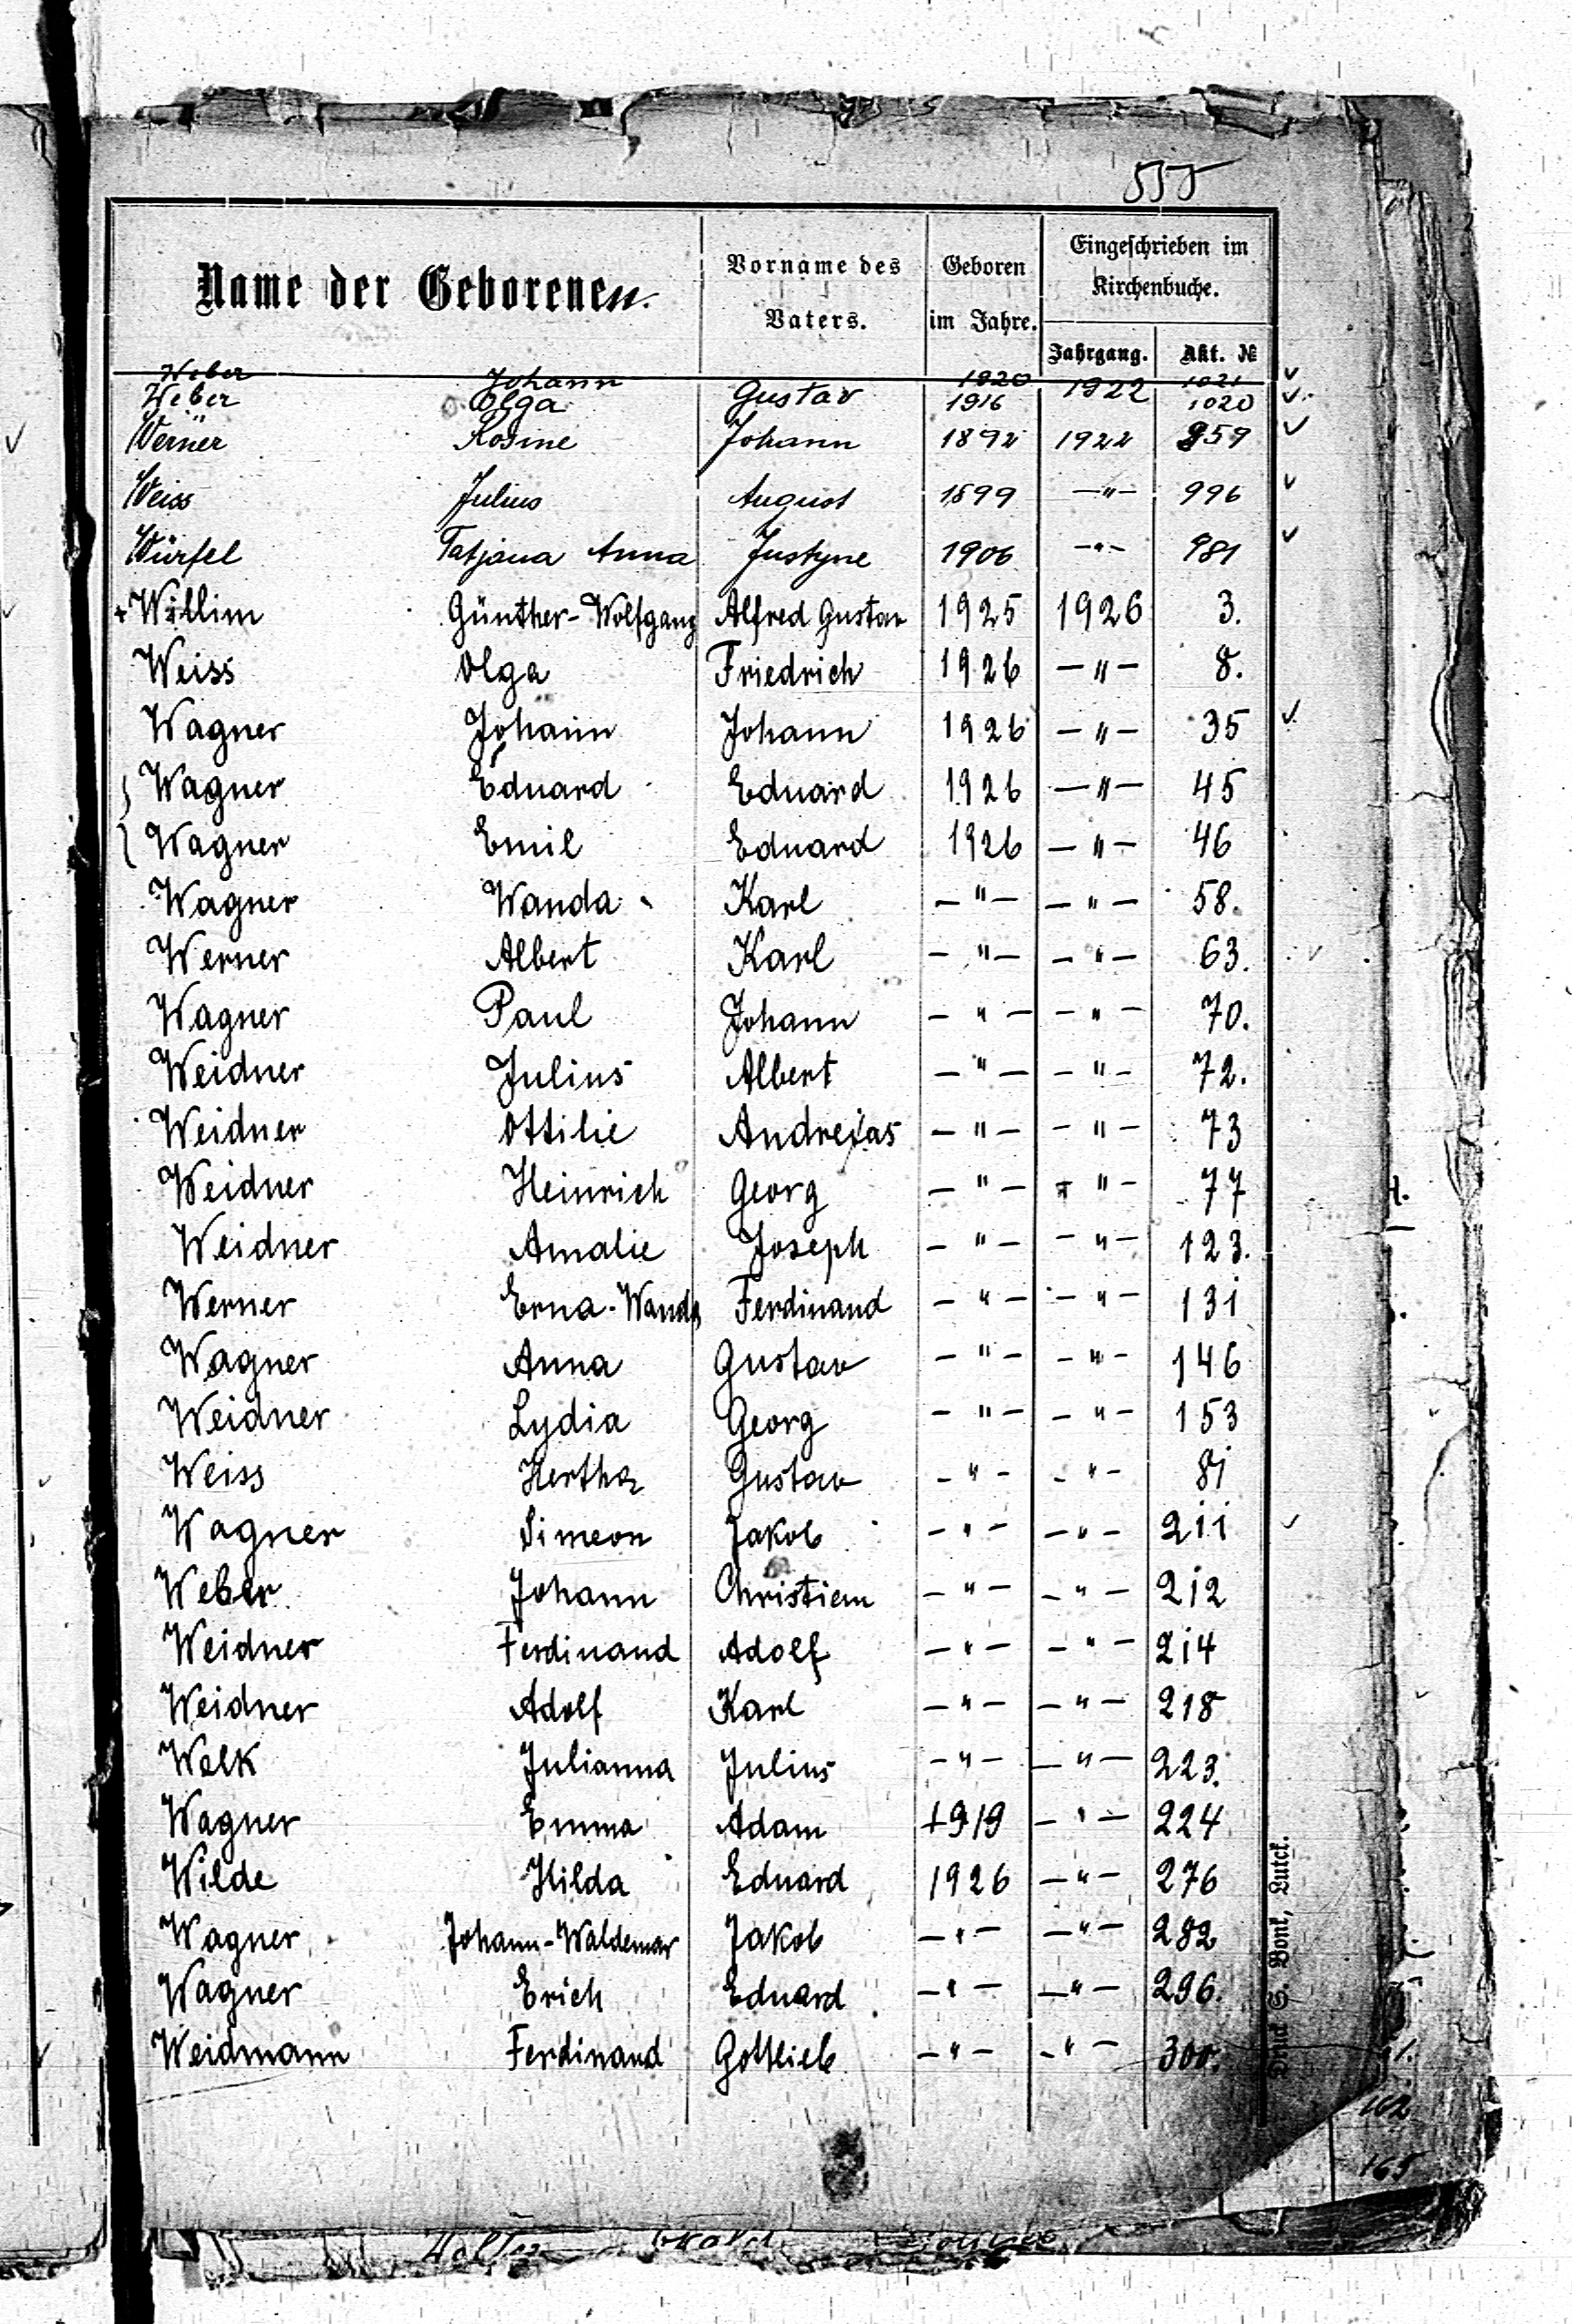 555
Name der Geborenen.
Vorname des Vaters.
Geboren im Jahre.
Eingeschrieben im Kirchenbuche.
Jahrgang. Akt. №
Weber Johann 1920 1021
Weber Olga Gustav 1916 1922 1020
Werner Rosine Johann 1892 1922 959
Weiss Julius August 1899 —"— 996
Würfel Tatjana Anna Justyne 1906 —"— 981
+ Willim Günther-Wolfgang Alfred Gustav 1925 1926 3.
Weiss Olga Friedrich 1926 —"— 8.
Wagner Johann Johann 1926 —"— 35
Wagner Eduard Eduard 1926 —"— 45
Wagner Emil Eduard 1926 —"— 46
Wagner Wanda Karl —"— —"— 58.
Werner Albert Karl —"— —"— 63.
Wagner Paul Johann —"— —"— 70.
Weidner Julius Albert —"— —"— 72.
Weidner Ottilie Andreas —"— —"— 73
Weidner Heinrich Georg —"— —"— 77
Weidner Amalie Joseph —"— —"— 123.
Werner Erna-Wanda Ferdinand —"— —"— 131
Wagner Anna Gustav —"— —"— 146
Weidner Lydia Georg —"— —"— 153
Weiss Hertha Gustav —"— —"— 81
Wagner Simeon Jakob —"— —"— 211
Weber Johann Christian —"— —"— 212
Weidner Ferdinand Adolf —"— —"— 214
Weidner Adolf Karl —"— —"— 218
Welk Julianna Julius —"— —"— 223.
Wagner Emma Adam 1919 —"— 224
Wilde Hilda Eduard 1926 —"— 276
Wagner Johann-Waldemar Jakob —"— —"— 282
Wagner Erich Eduard —"— —"— 296.
Weidmann Ferdinand Gottlieb —"— —"— 300.
Druck S. Bonk, Lutck.
162
165